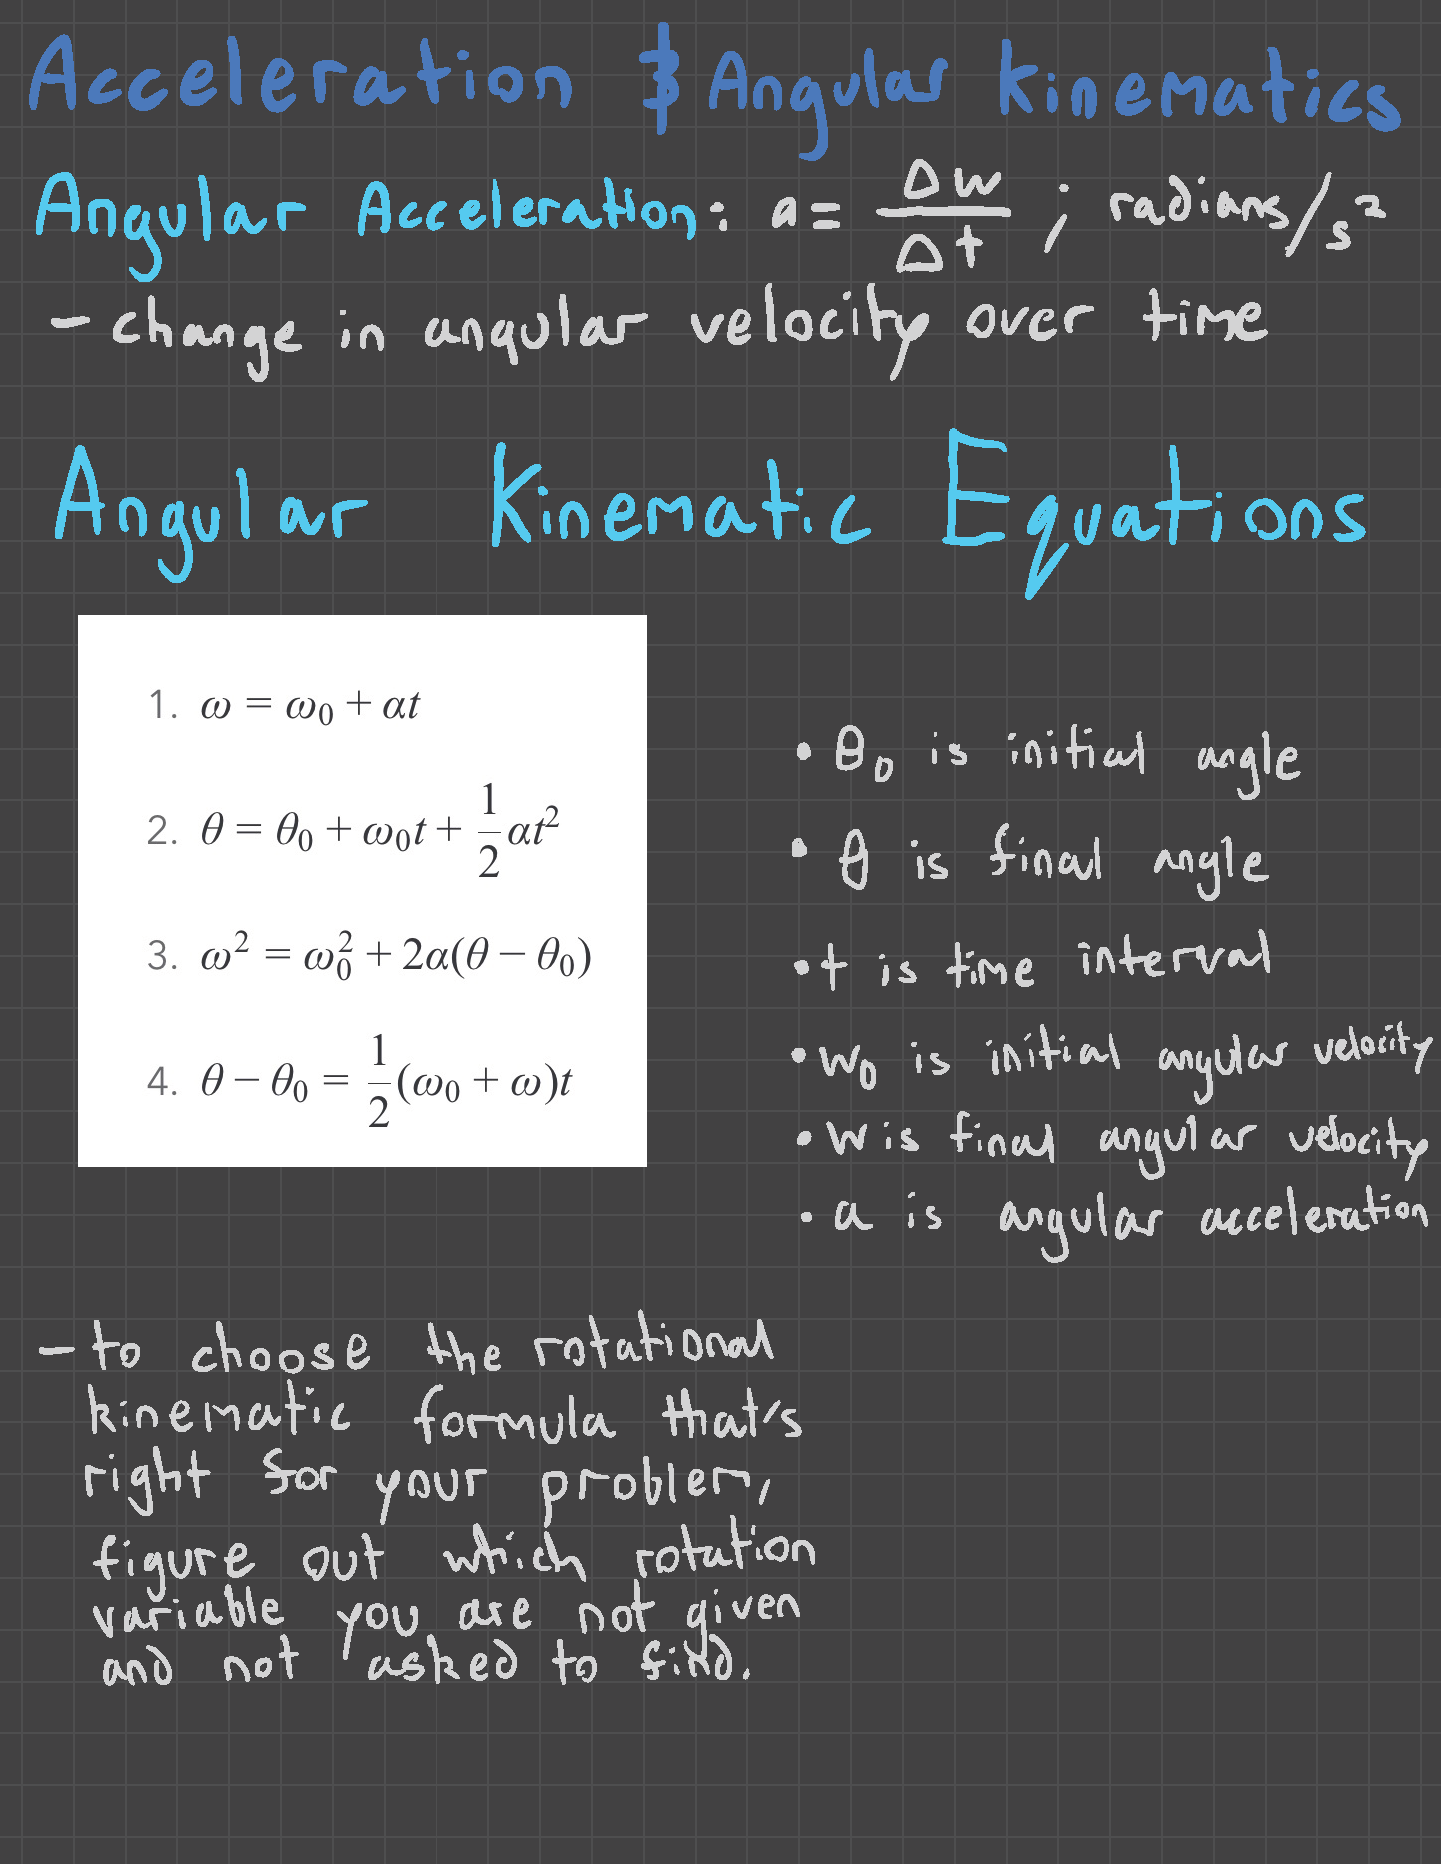 Acceleration & Angular Kinematics
Angular Acceleration: a = Δw/Δt ; radians/s²
- change in angular velocity over time
Angular Kinematic Equations
1. ω = ω₀ + αt
2. θ = θ₀ + ω₀t + 1/2 αt²
3. ω² = ω₀² + 2α(θ − θ₀)
4. θ − θ₀ = 1/2 (ω₀ + ω)t
• θ₀ is initial angle
• θ is final angle
• t is time interval
• w₀ is initial angular velocity
• w is final angular velocity
• a is angular acceleration
- to choose the rotational
kinematic formula that's
right for your problem,
figure out which rotation
variable you are not given
and not asked to find.